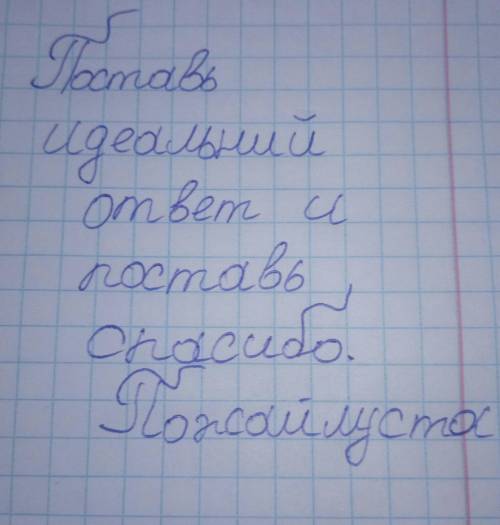 Поставь
идеальний
ответ и
поставь
спасибо.
Пожайлуста